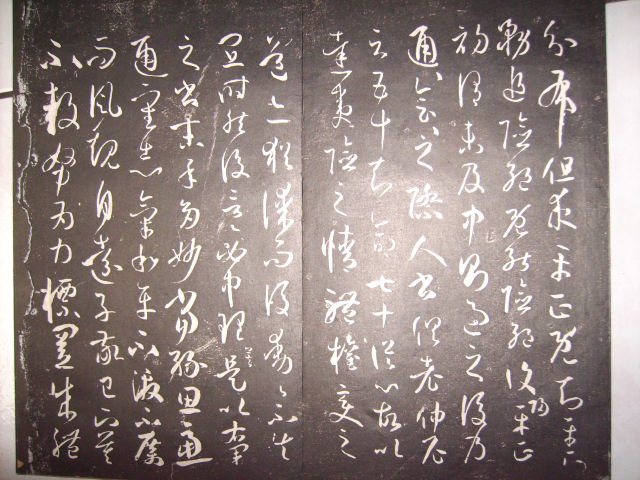 分布但求平正既知平正
務追險絶既能險絶復歸平正
初謂未及中則過之後乃
通會〻之際人書俱老仲尼
云五十知命七十從心故以
達夷險之情體權變之
道亦猶謀而後動〻不失
宜時然後言〻必中理矣是以右軍
之書末年多妙當緣思慮
通審志氣和平不激不厲
而風規自遠子敬已下莫
不鼓努為力標置成體